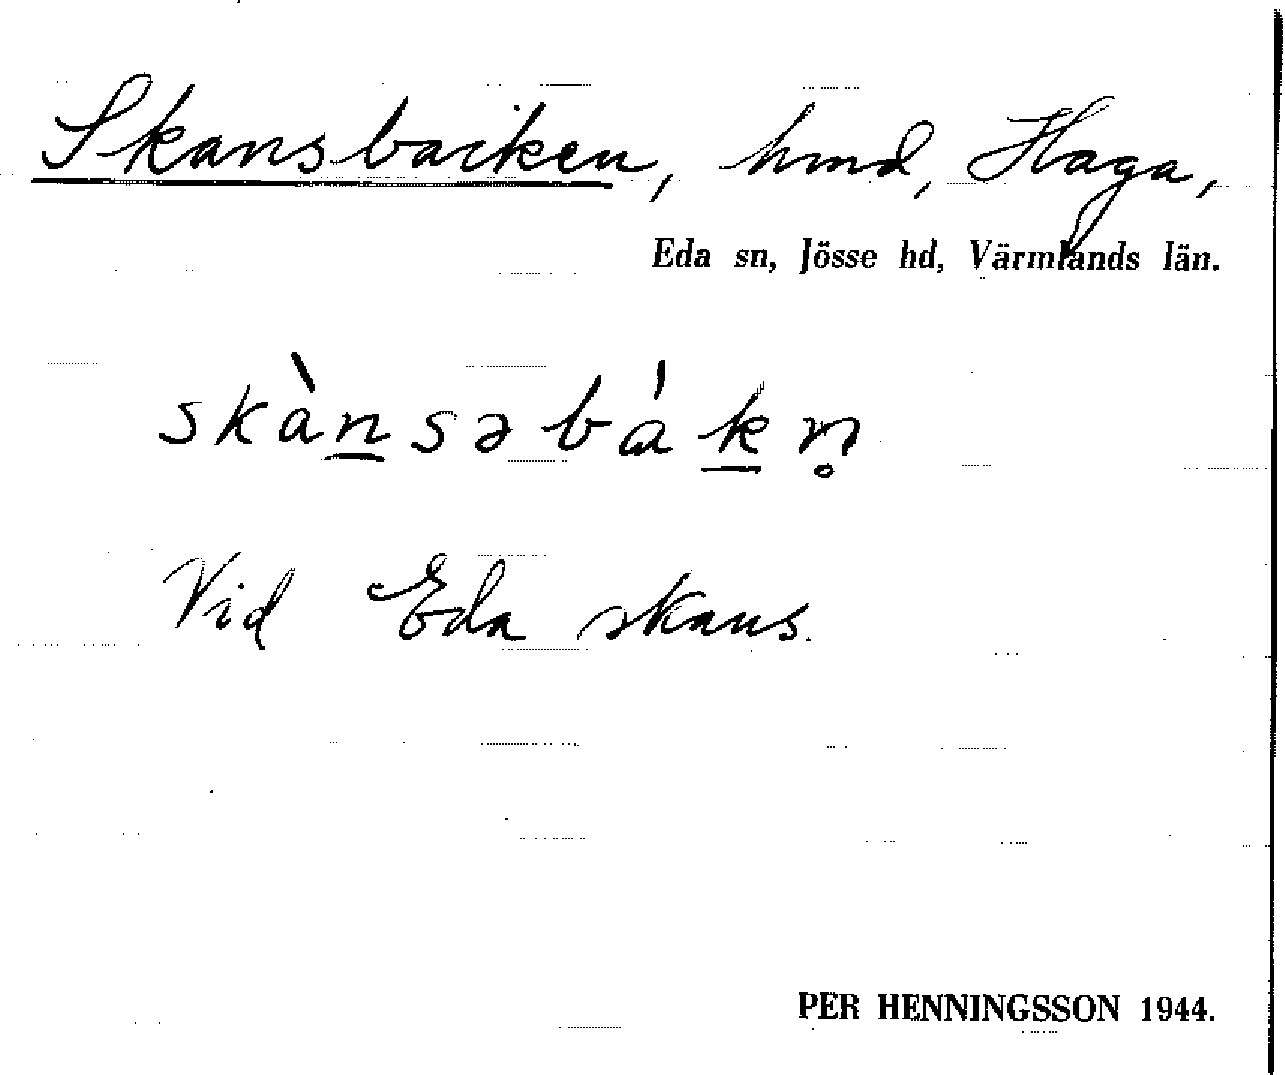 Skansbacken, hmd, Haga,
Eda sn, Jösse hd, Värmlands län.
skànsəbákn̥
Vid Eda skans.
PER HENNINGSSON 1944.